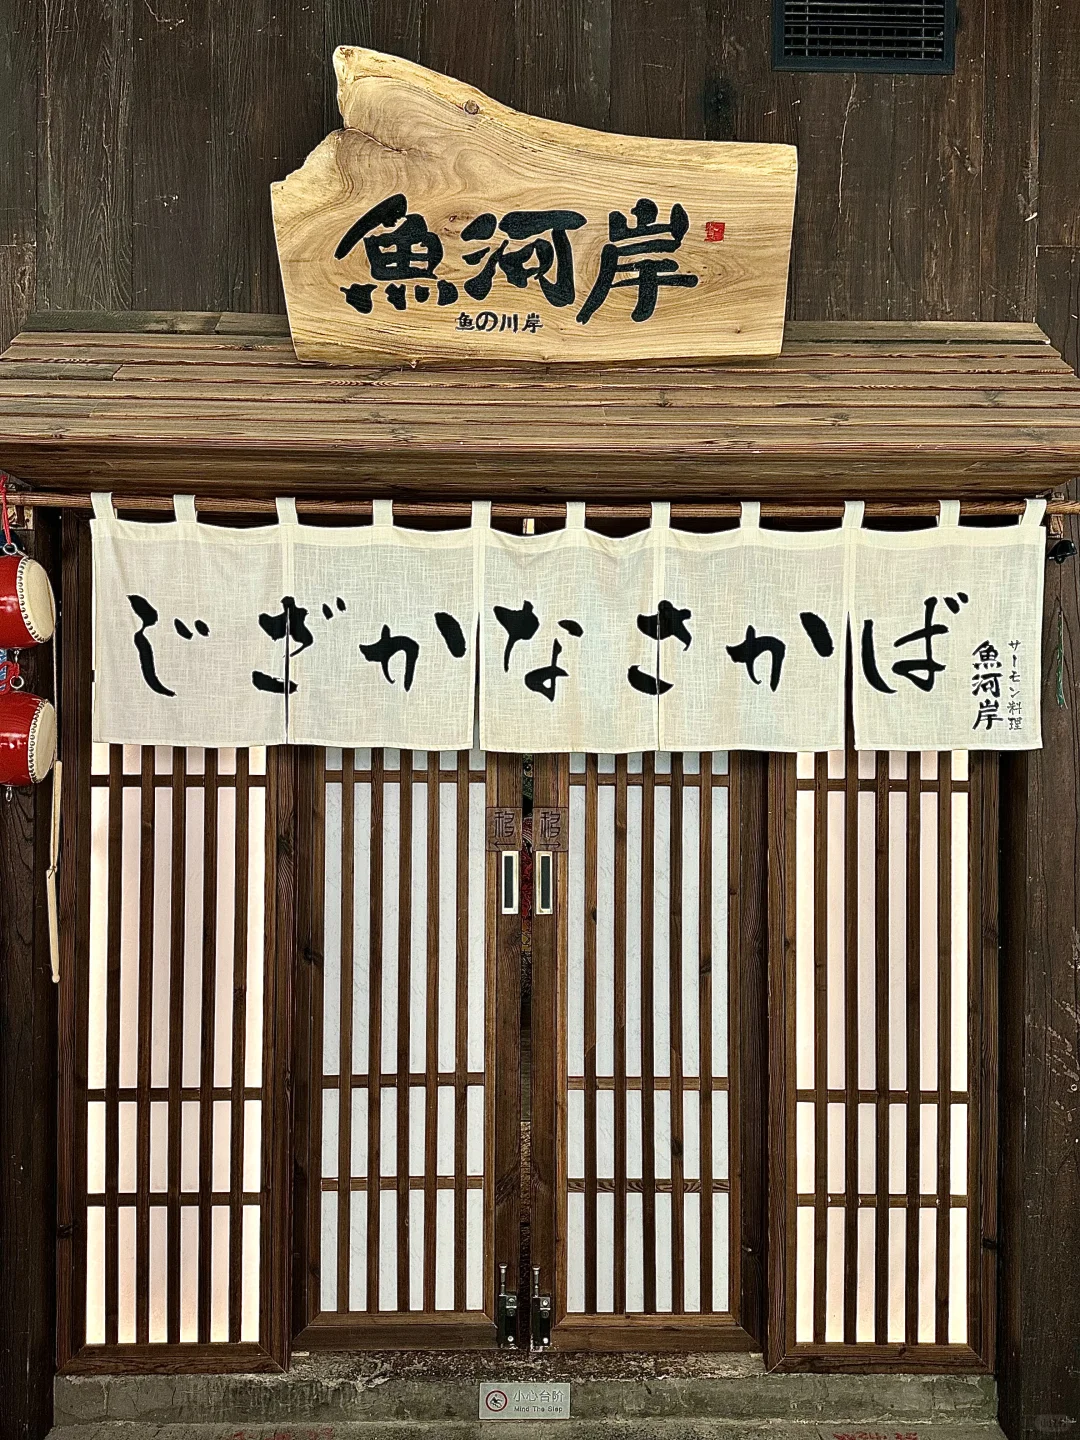 魚河岸
鱼の川岸
じざかなさかば
サーモン料理
魚河岸
移 移
小心台阶
Mind The Step